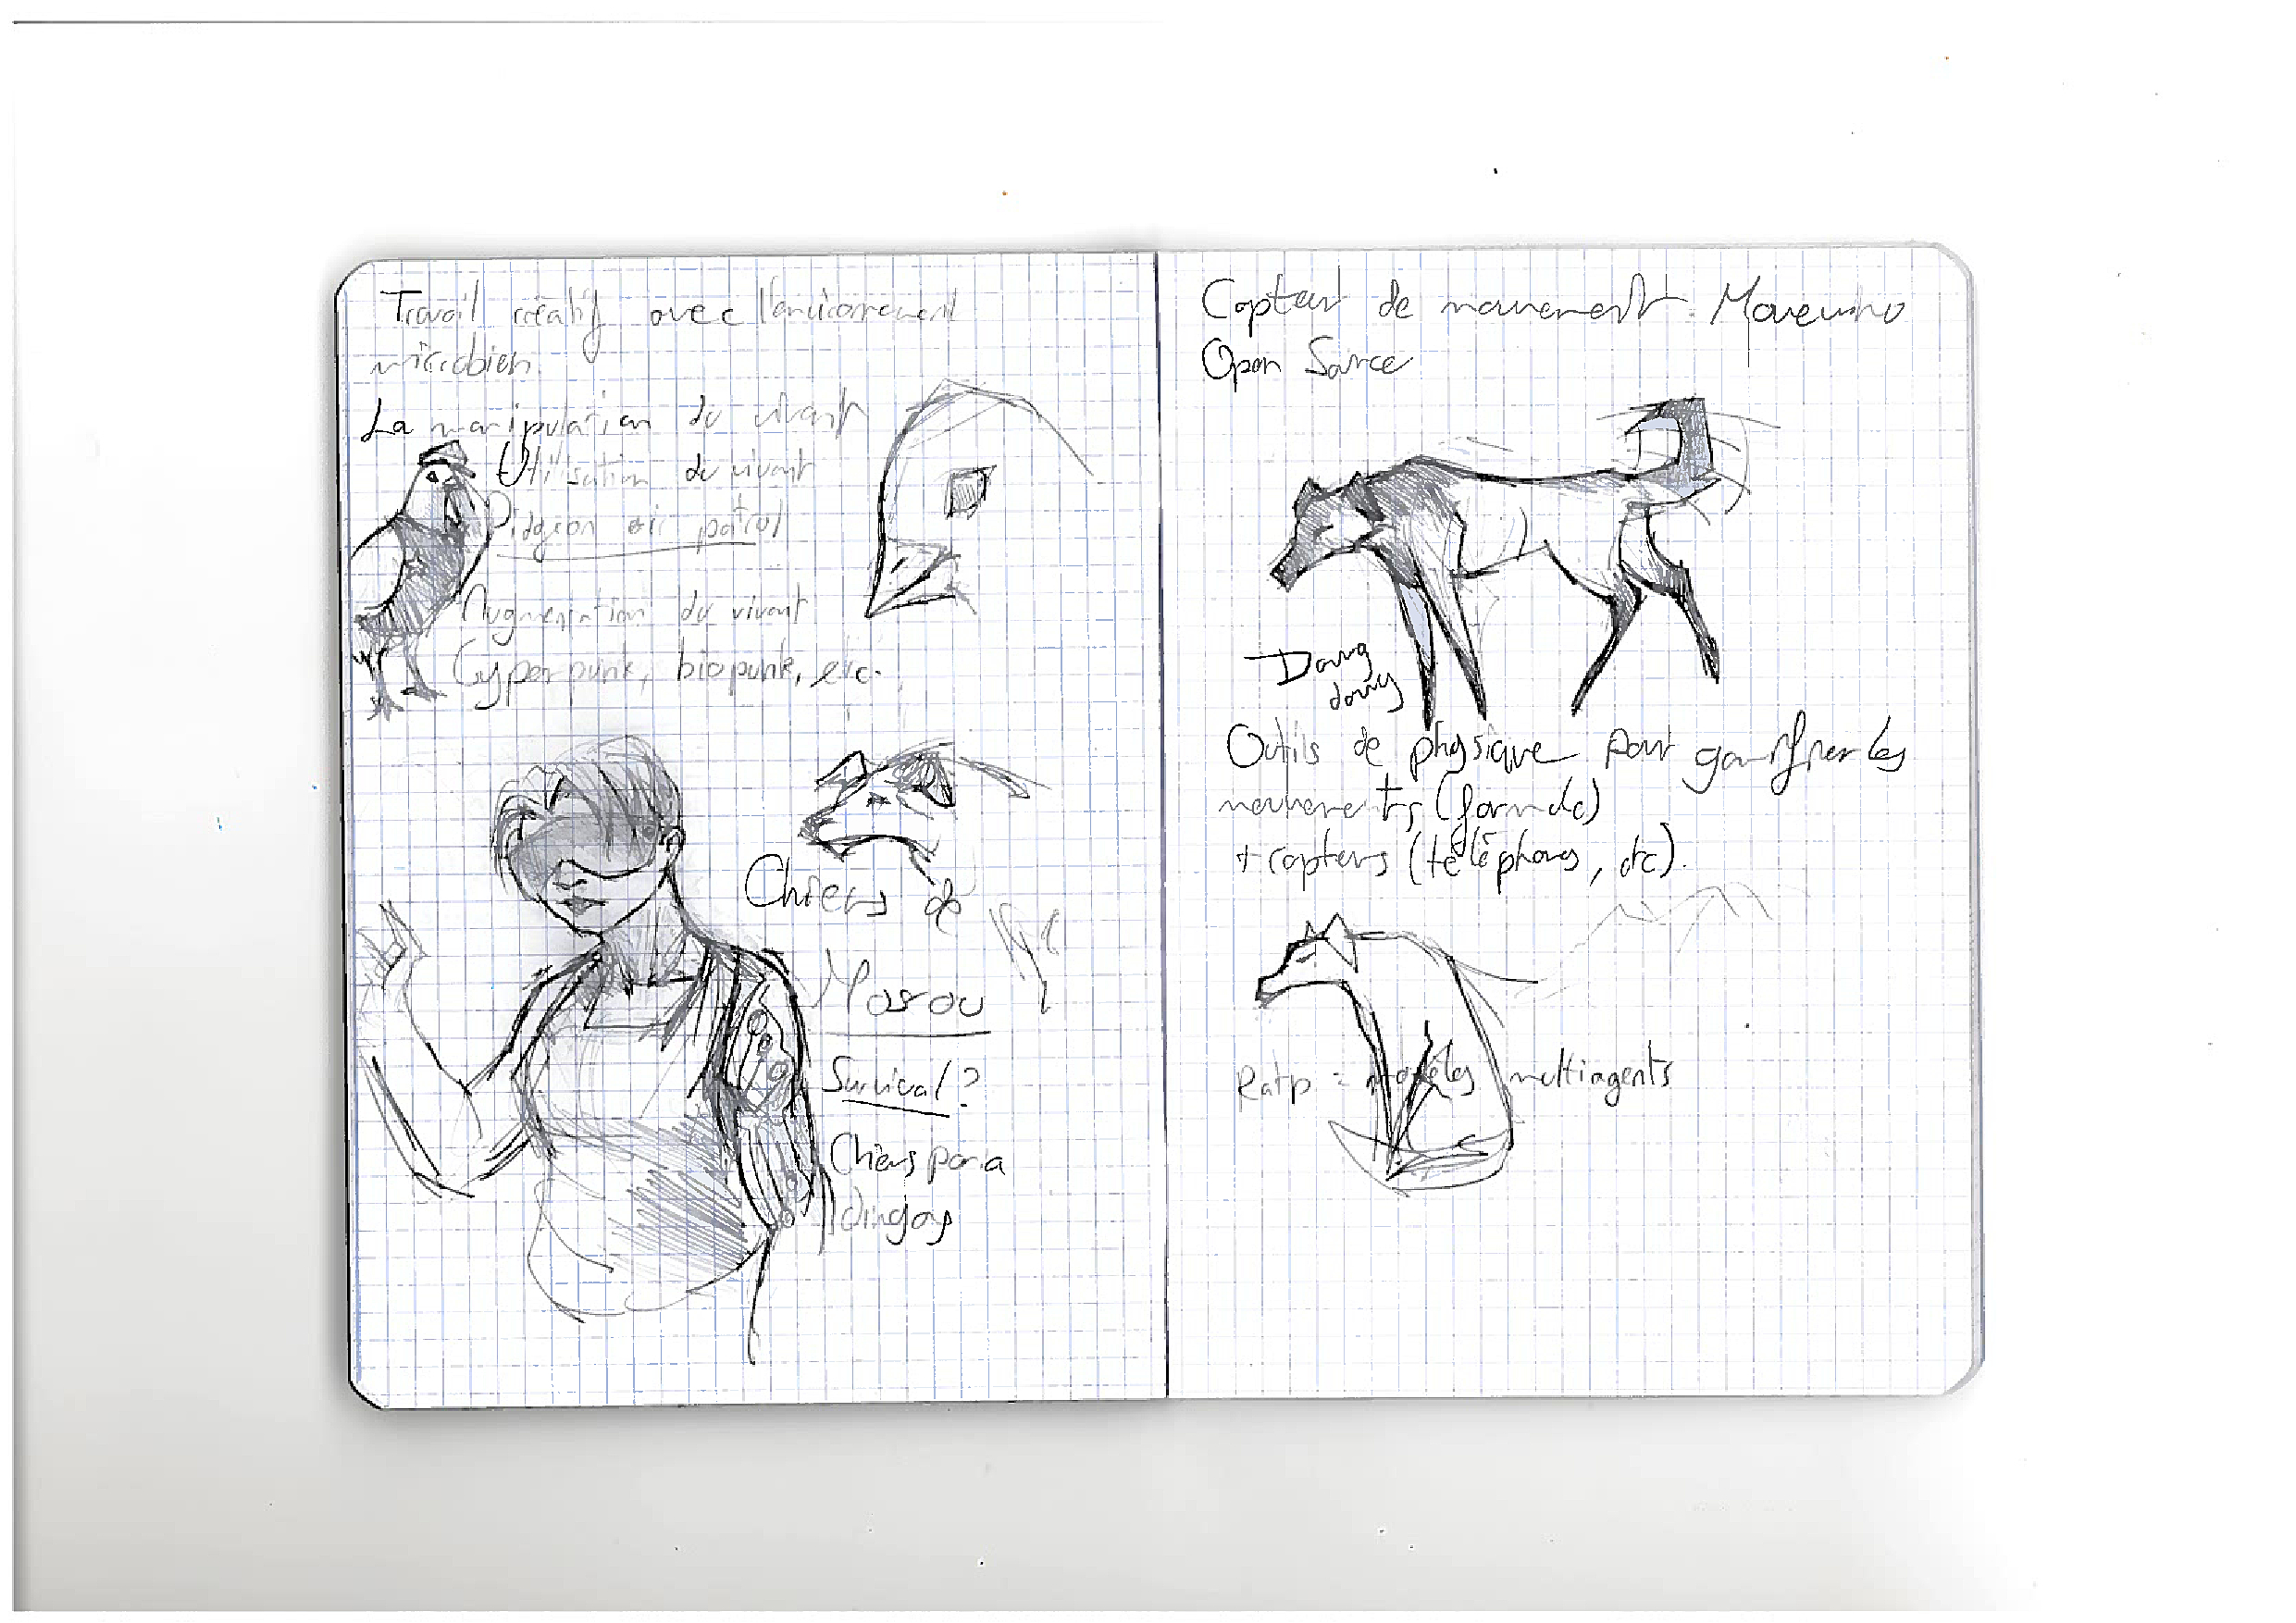 Travail créatif avec l'environnement
microbien.
La manipulation du vivant
Utilisation du vivant
Pidgeon air patrol
Augmentation du vivant
Cyperpunk, biopunk, etc.
Chiens de
Survival?
Chiens paria
dingos
Capteur de mouvement: Moveuino
Open Source
Outils de physique pour les
mouvements (formule)
+ capteurs (téléphones, etc).
Ratp = modèles multiagents